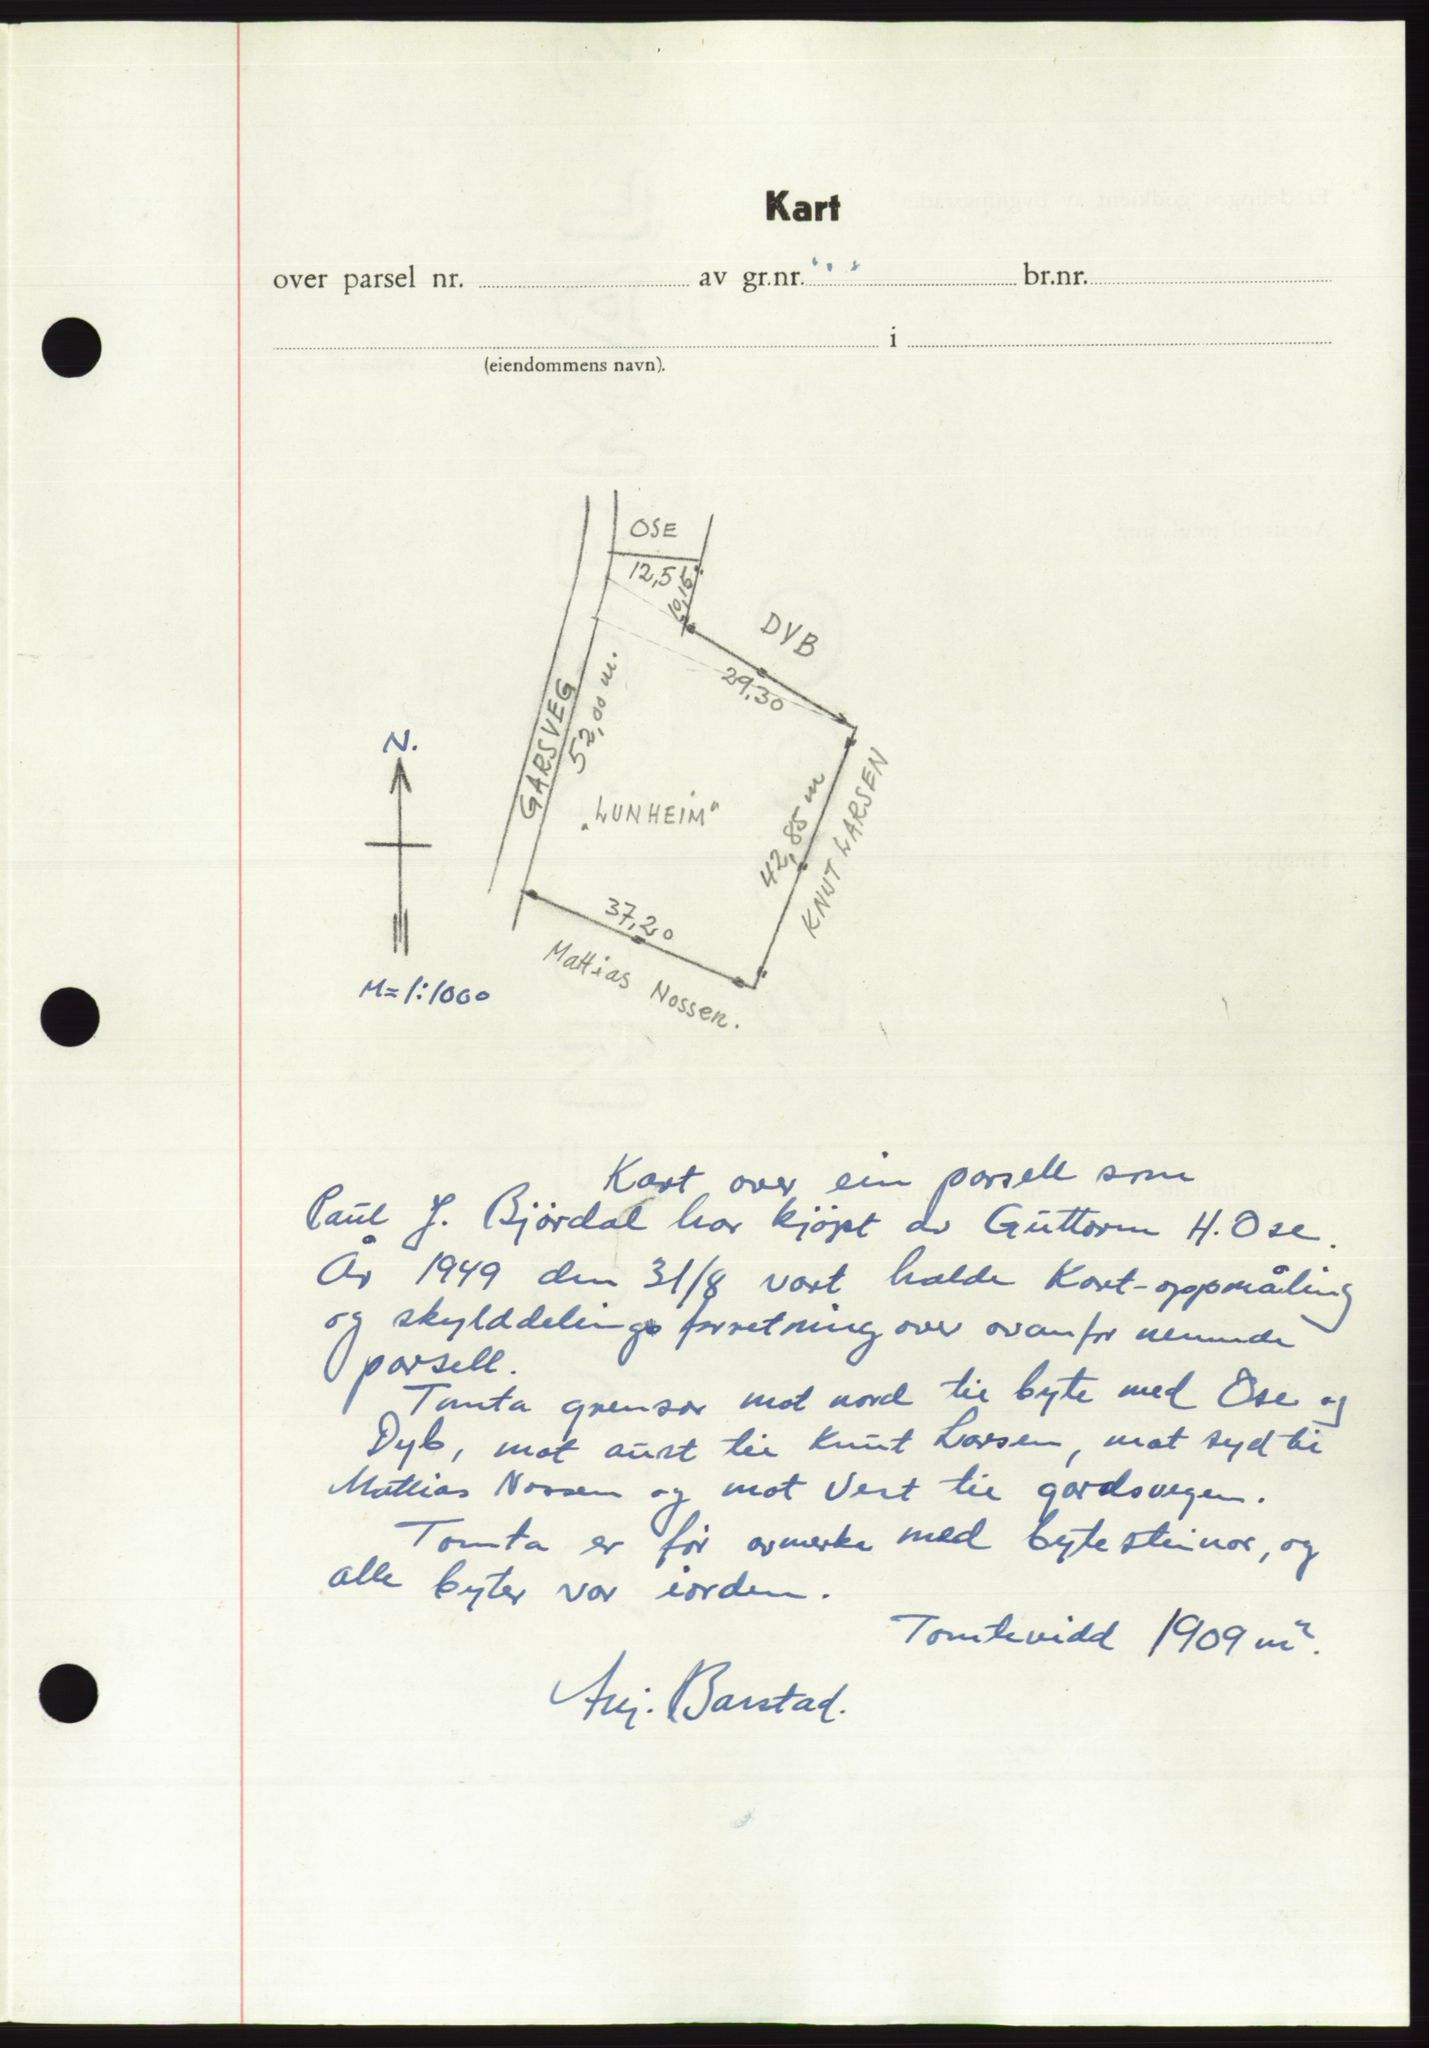 Kart
over parsel nr. av gr.nr. br.nr.
i
(eiendommens navn).
OSE
12,5
10,15
DYB
29,30
GARSVEG
52,00 m.
N.
„LUNHEIM"
42,85 m
KNUT LARSEN
37,20
Mattias Nossen.
M=1:1000
Kart over ein parsell som
Paul J. Björdal har kjöpt av Guttorm H. Ose.
År 1949 den 31/8 vart halde Kart-oppmåling
og skylddelings forretning over ovanfor nemnde
parsell.
Tomta grensar mot nord til byte med Ose og
Dyb, mot aust til Knut Larsen, mot syd til
Mattias Nossen og mot Vest til gardsvegen.
Tomta er för avmerka med bytesteinar, og
alle byter var iorden.
Tomtevidd 1909 m².
Barstad.